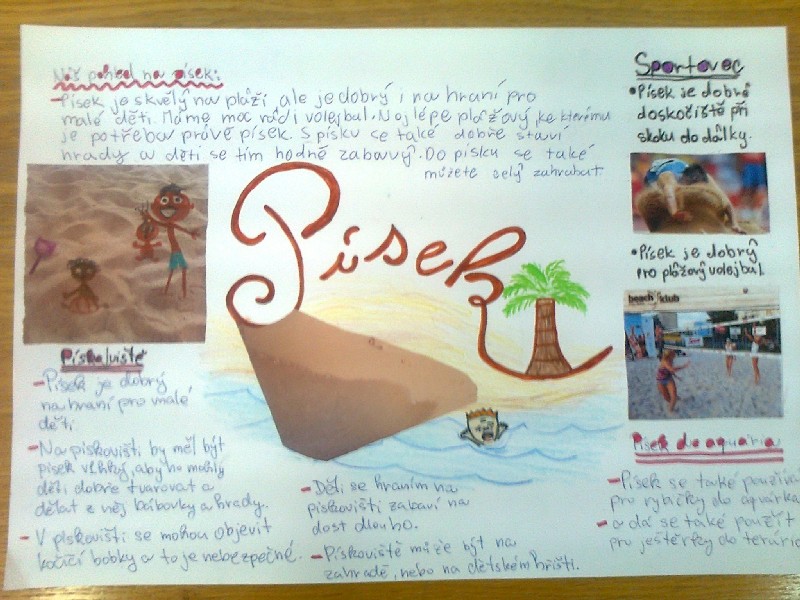 Náš pohled na písek:
- Písek je skvělý na pláži ale je dobrý i na hraní pro
malé děti. Máme moc rádi volejbal. Nejlépe plážový ke kterému
je potřeba právě písek. S písku se také dobře staví
hrady a děti se tím hodně zabavý. Do písku se také
můžete celý zahrabat
Písek
Sportovec
• Písek je dobré
doskočiště při
skoku do dálky.
• Písek je dobrý
pro plážový volejbal
beach klub
Pískoviště
- Písek je dobrý
na hraní pro malé
děti
- Na pískovišti by měl být
písek vlhký, aby ho mohly
děti dobře tvarovat a
dělat z něj bábovky a hrady.
- V pískovišti se mohou objevit
kočičí bobky a to je nebezpečné.
- Děti se hraním na
pískovišti zabaví na
dost dlouho.
- Pískoviště může být na
zahradě, nebo na dětském hřišti.
Písek do aquária
- Písek se také používá
pro rybičky do aquárka
- a dá se také použít
pro ještěrky do terária